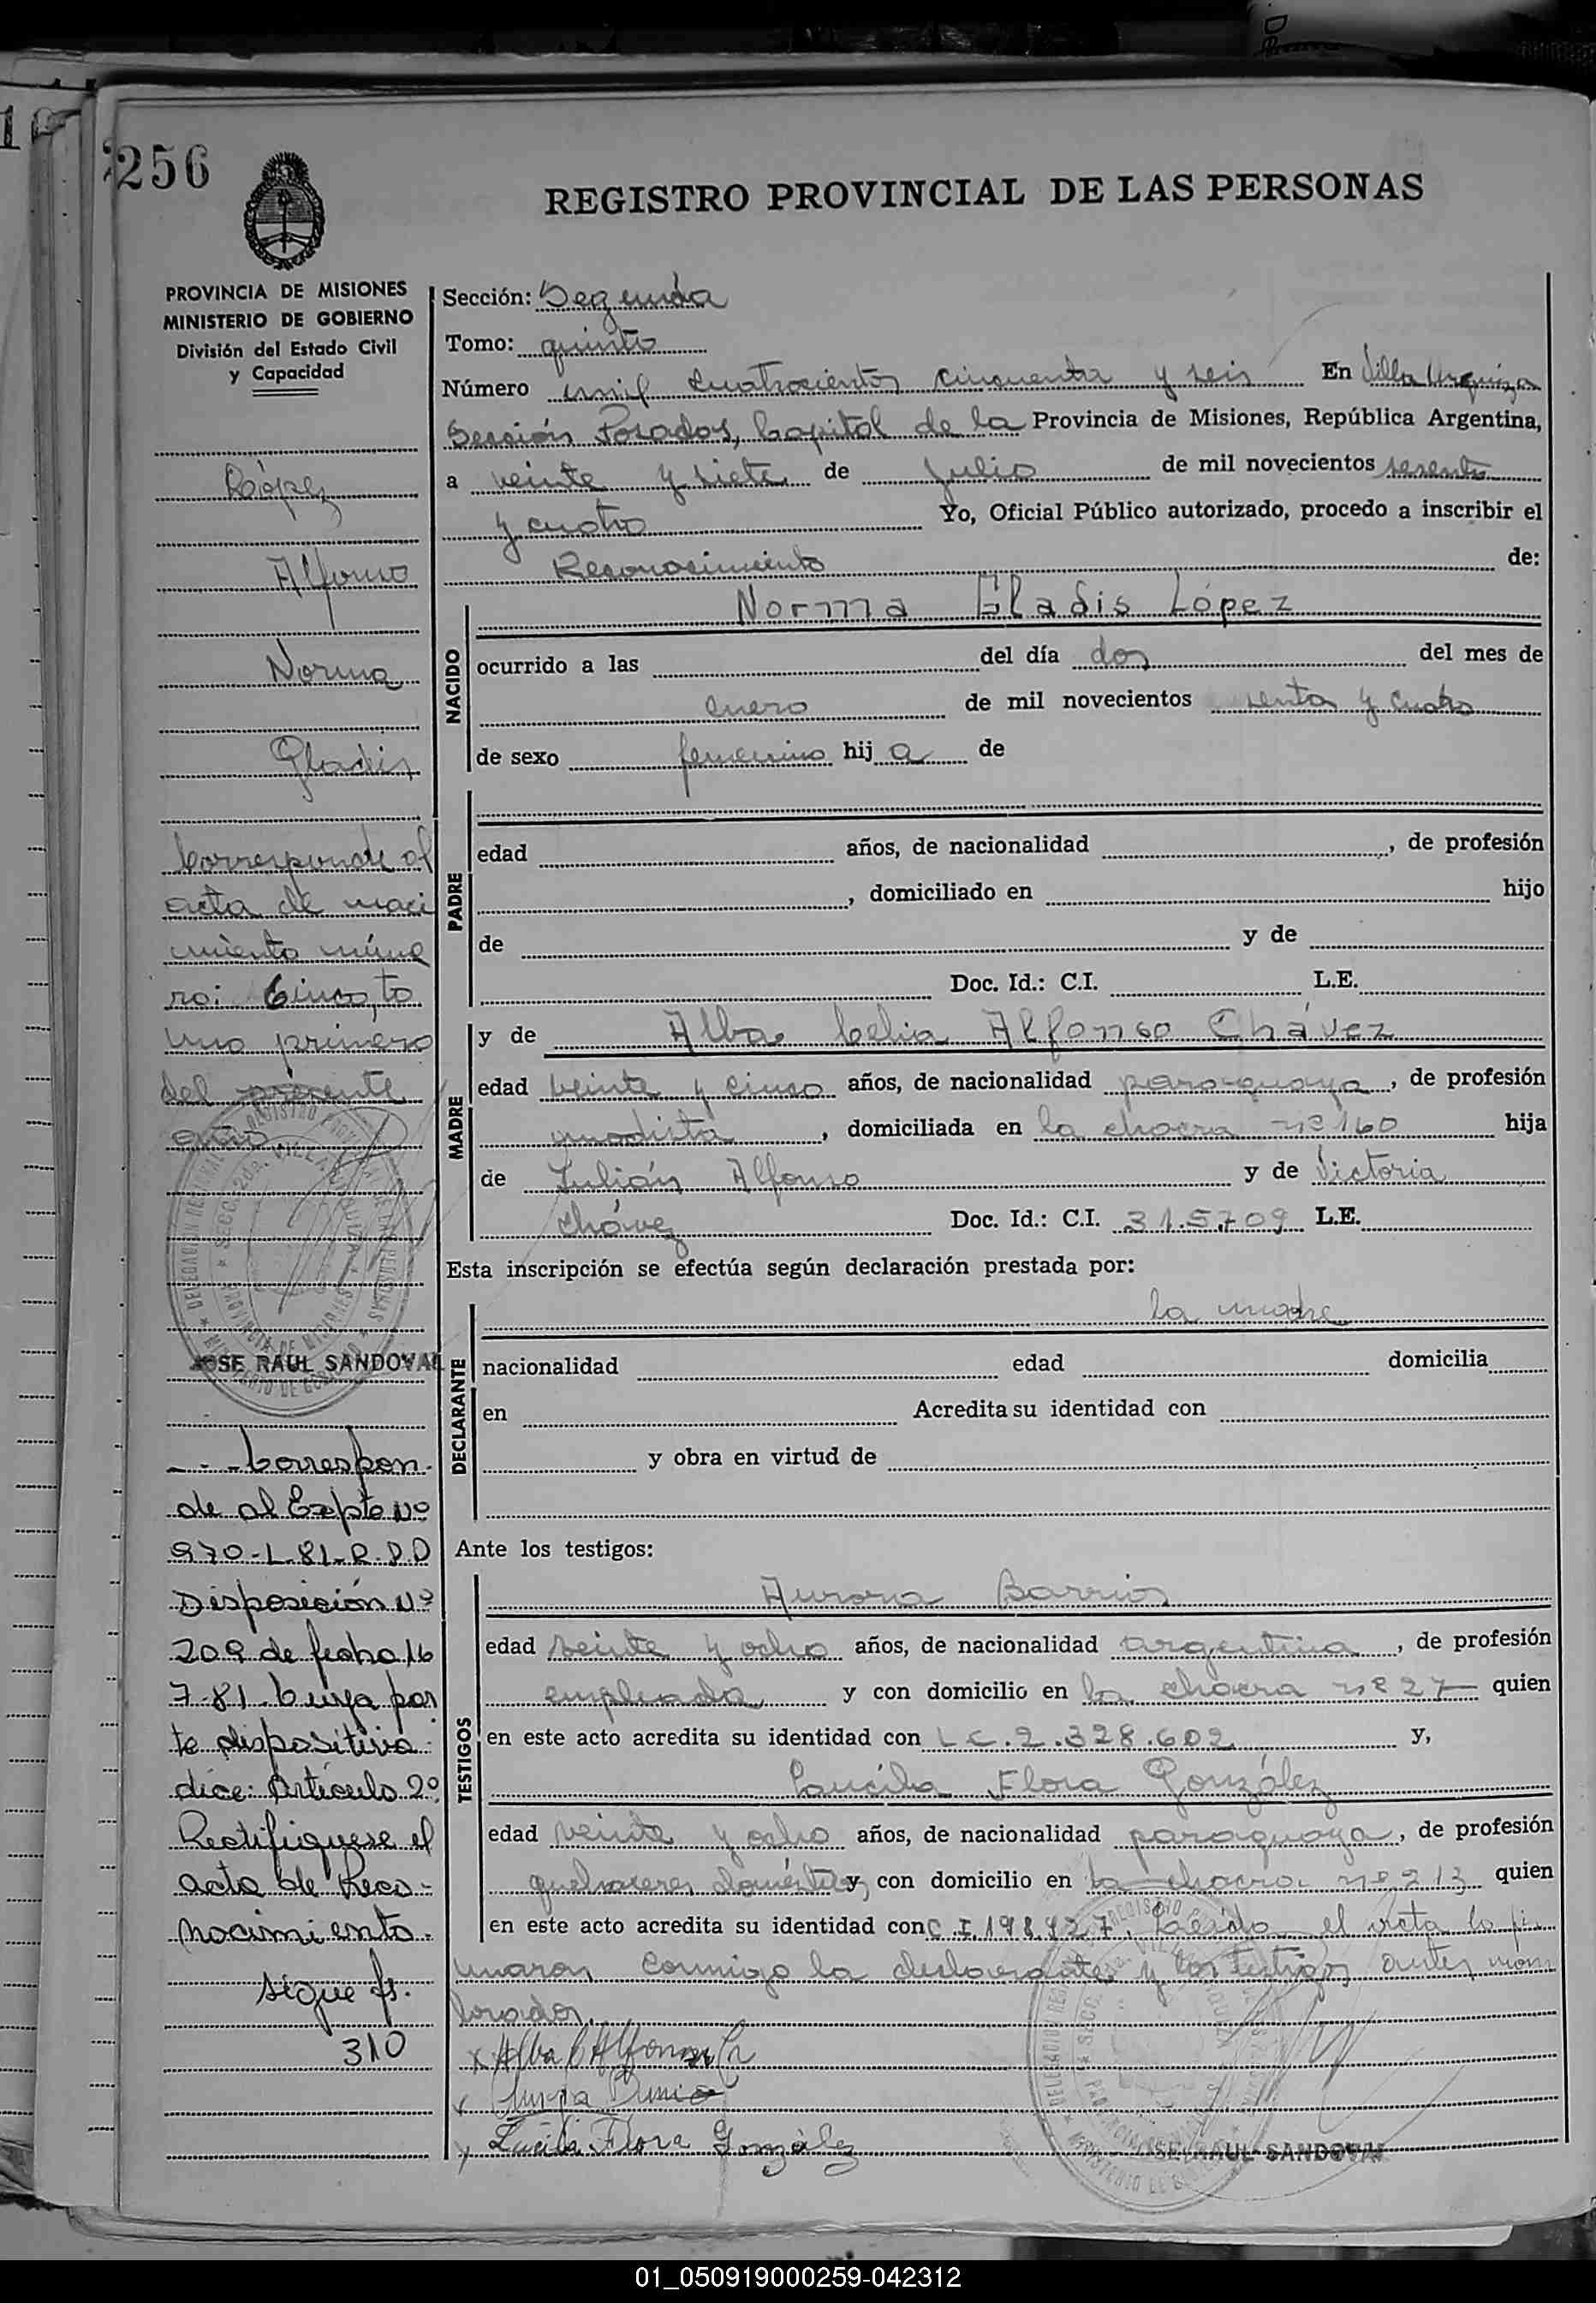 256
REGISTRO PROVINCIAL DE LAS PERSONAS
PROVINCIA DE MISIONES
MINISTERIO DE GOBIERNO
División del Estado Civil
y Capacidad
López
Alfonso
Norma
Gladis
Corresponde al
acta de naci
miento núme
ro: Cinco, to
mo primero
del presente
año
JOSE RAUL SANDOVAL
- . - Correspon-
de al Expte Nº
970-L-81-R.P.P
Disposición Nº
209 de fecha 16
7-81. Cuya par
te dispositiva
dice: Artículo 2º
Rectifiquese el
acta de Reco-
nocimiento.
sigue fs.
310
Sección: Segunda
Tomo: quinto
Número mil cuatrocientos cincuenta y seis En Villa Urquiza
Sección Posadas, Capital de la Provincia de Misiones, República Argentina,
a veinte y siete de julio de mil novecientos sesenta
y cuatro Yo, Oficial Público autorizado, procedo a inscribir el
Reconocimiento de:
NACIDO
Norma Gladis López
ocurrido a las del día dos del mes de
enero de mil novecientos senta y cuatro
de sexo femenino hij a de
PADRE
edad años, de nacionalidad , de profesión
, domiciliado en hijo
de y de
Doc. Id.: C.I. L.E.
MADRE
y de Alba Celia Alfonso Chávez
edad veinte y cinco años, de nacionalidad paraguaya, de profesión
modista, domiciliada en la chacra nº 160 hija
de Julián Alfonso y de Victoria
Chávez Doc. Id.: C.I. 315.709 L.E.
Esta inscripción se efectúa según declaración prestada por:
DECLARANTE
la madre
nacionalidad edad domicilia
en Acredita su identidad con
y obra en virtud de
Ante los testigos:
TESTIGOS
Aurora Barrios
edad veinte y ocho años, de nacionalidad argentina, de profesión
empleada y con domicilio en la chacra nº 27 quien
en este acto acredita su identidad con L.C. 2.328.602 y,
Lucila Flora González
edad veinte y ocho años, de nacionalidad paraguaya, de profesión
quehaceres domésticos y con domicilio en la chacra nº 213 quien
en este acto acredita su identidad con C.I. 198.927. Leída el acta la fir
maron conmigo la declarante y los testigos antes nom
brados.
x Alba C Alfonso Ch
x
x Lucila Flora González
JOSE RAUL SANDOVAL
01_050919000259-042312